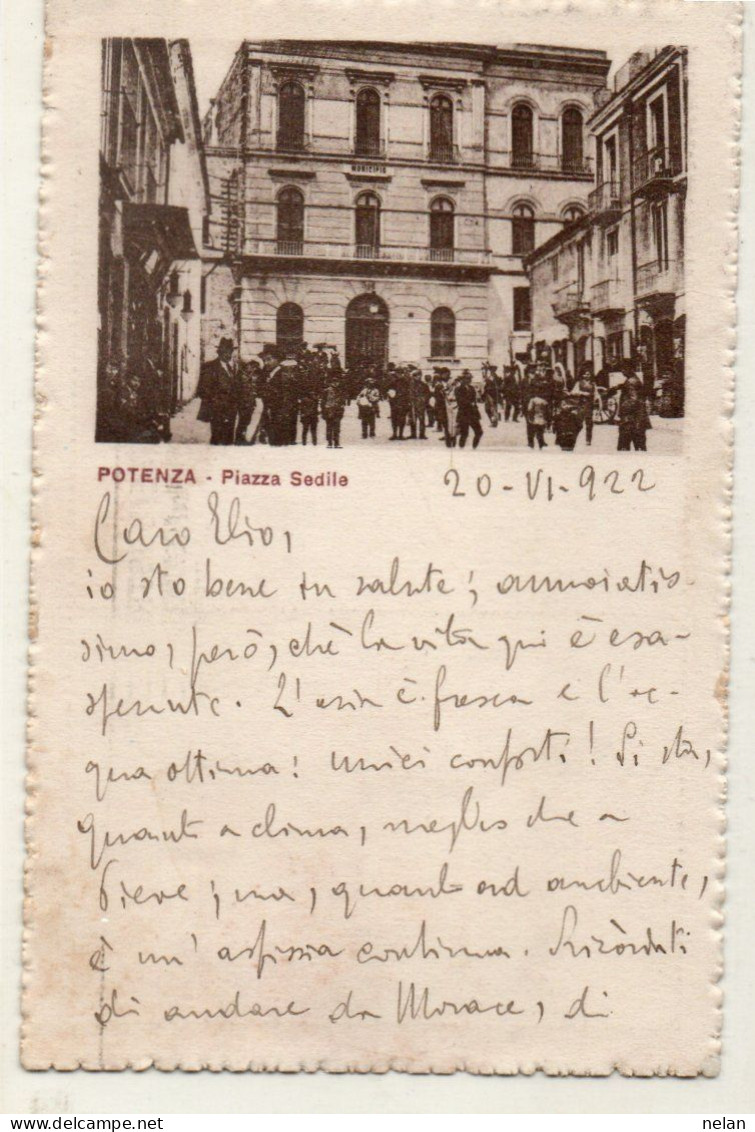 MUNICIPIO
POTENZA - Piazza Sedile
20-VI-922
Caro Elio,
io sto bene in salute; annoiatis-
simo, però, chè la vita qui è esa-
sperante. L'aria è fresca e l'ac-
qua ottima! Unici conforti! Si sta,
quanto a clima, meglio che a
Pieve; ma, quanto ad ambiente,
è un'asfissia continua. Ricordati
di andare da Morace, di
delcampe.net
nelan